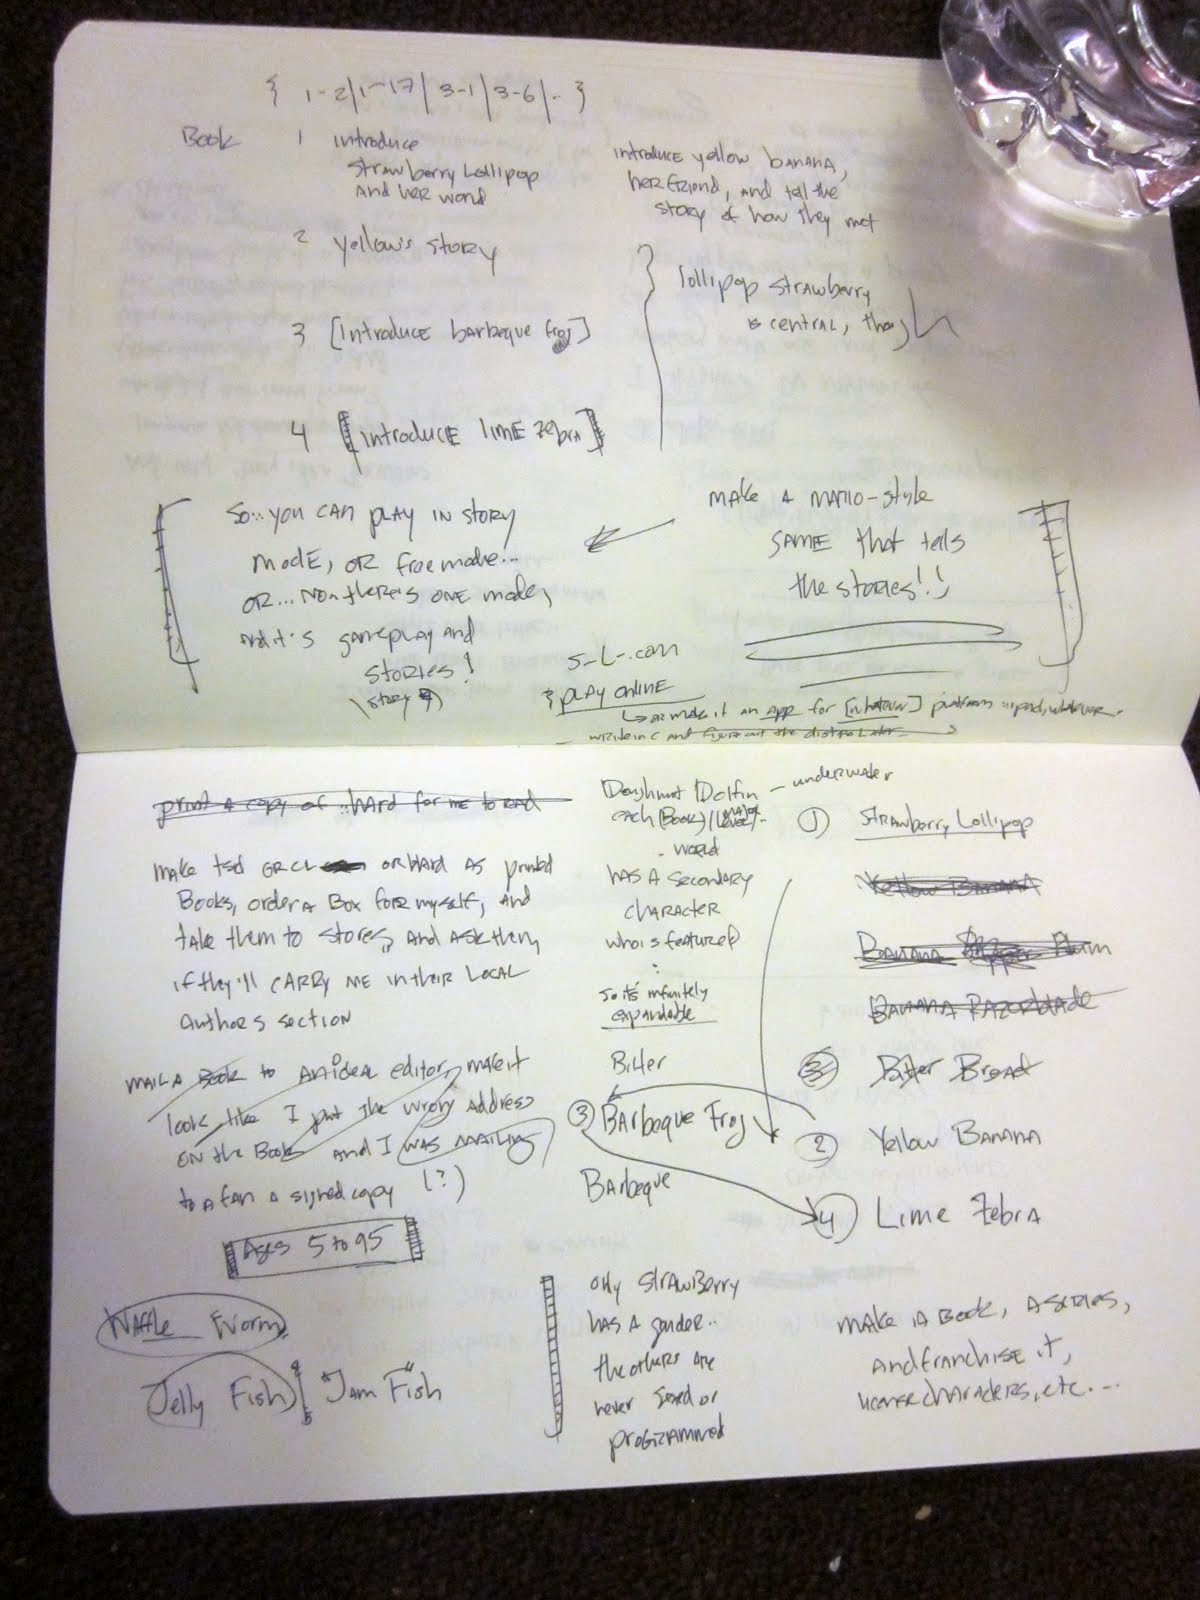 { 1-2 | 1-17 | 3-1 | 3-6 | .. }
Book 1 introduce
strawberry Lollipop
and her world
introduce yellow banana,
her friend, and tell the
story of how they met
2 yellow's story
lollipop strawberry
is central, though
3 [introduce barbeque frog]
4 [introduce lime zebra]
make a mario-style
game that tells
the stories!!
so.. you can play in story
mode, or free mode...
or... no there's one mode,
and it's gameplay and
stories!
(story)
S-L-.com
{ play online
or make it an app for [whatever] platform ipad, whatever.
write in C and figure out the distro later
print a copy of .. hard for me to read
make tsd GRCL or blard as printed
Books, order a Box for myself, and
take them to stores, and ask them
if they'll carry me in their local
authors section
mail a Book to an ideal editor, make it
look like I put the wrong address
on the Book and I was mailing
to a fan a signed copy (?)
Ages 5 to 95
Waffle Worm
Jelly Fish "Jam Fish"
Doughnut Dolfin - underwater
each (Book)/(major level)..
- world
has a secondary
character
who is featured
:
so its infinitely
expandable
Bitter
3 Barbeque Frog
Barbeque
1 Strawberry Lollipop
Yellow Banana
Banana Plum
Banana Razorblade
Bitter Bread
2 Yellow Banana
4 Lime Zebra
only strawberry
has a gender..
the others are
never sexed or
programmed
make a Book, a series,
and franchise it,
license characters, etc....